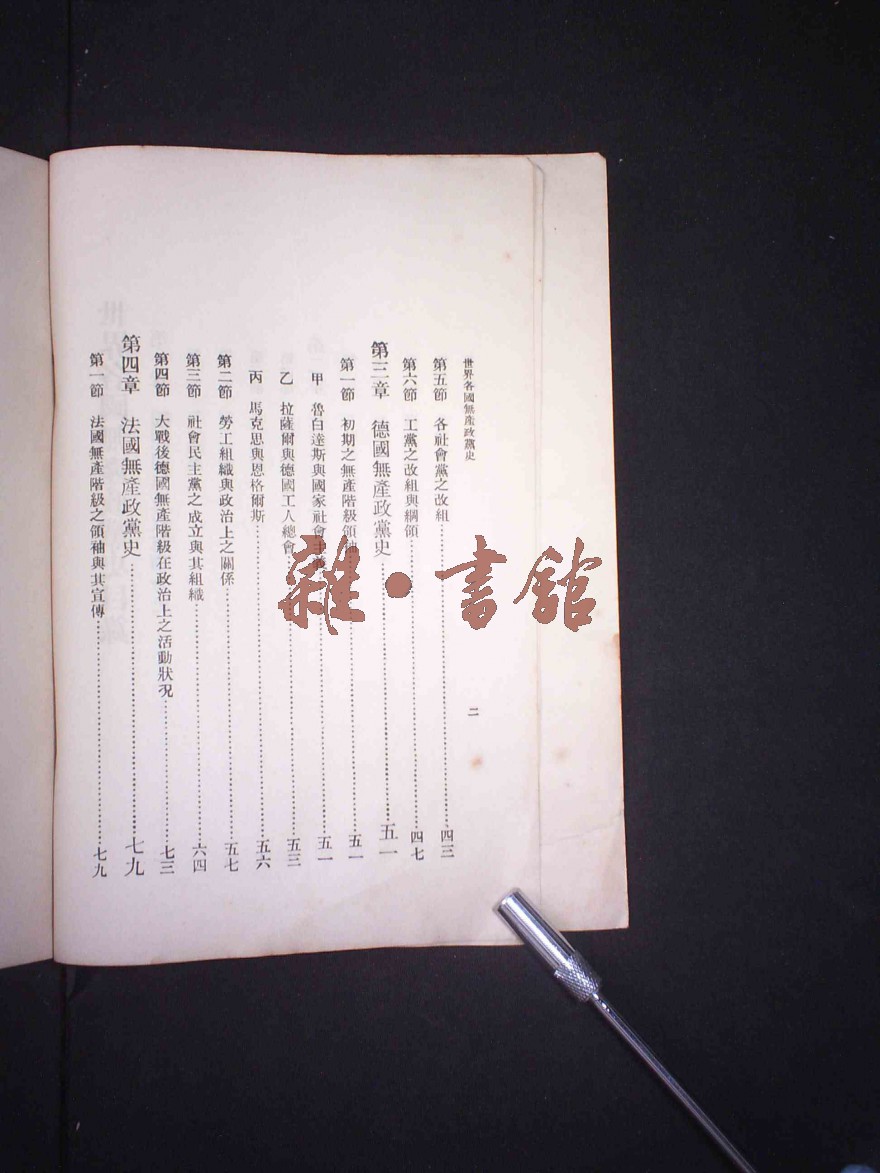 世界各國無產政黨史
二
第五節 各社會黨之改組……四三
第六節 工黨之改組與綱領……四七
第三章 德國無產政黨史……五一
第一節 初期之無產階級領袖……五一
甲 魯白達斯與國家社會主義……五一
乙 拉薩爾與德國工人總會……五三
丙 馬克思與恩格爾斯……五六
第二節 勞工組織與政治上之關係……五七
第三節 社會民主黨之成立與其組織……六四
第四節 大戰後德國無產階級在政治上之活動狀況……七三
第四章 法國無產政黨史……七九
第一節 法國無產階級之領袖與其宣傳……七九
雜·書館